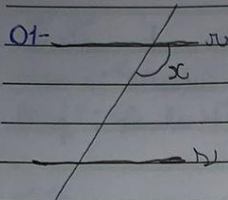 01-
r
x
s